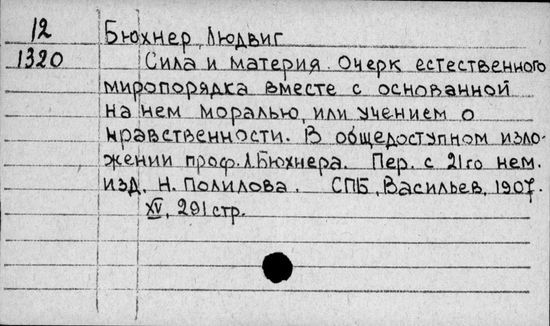 12 Бюхнер, Людвиг
1320 Сила и материя. Очерк естественного
миропорядка вместе с основанной
на нем моралью, или учением о
нравственности. В общедоступном изло-
жении проф. Л.Бюхнера. Пер. с 21го нем.
изд. Н. Полилова. СПБ, Васильев, 1907.
XV, 291 стр.